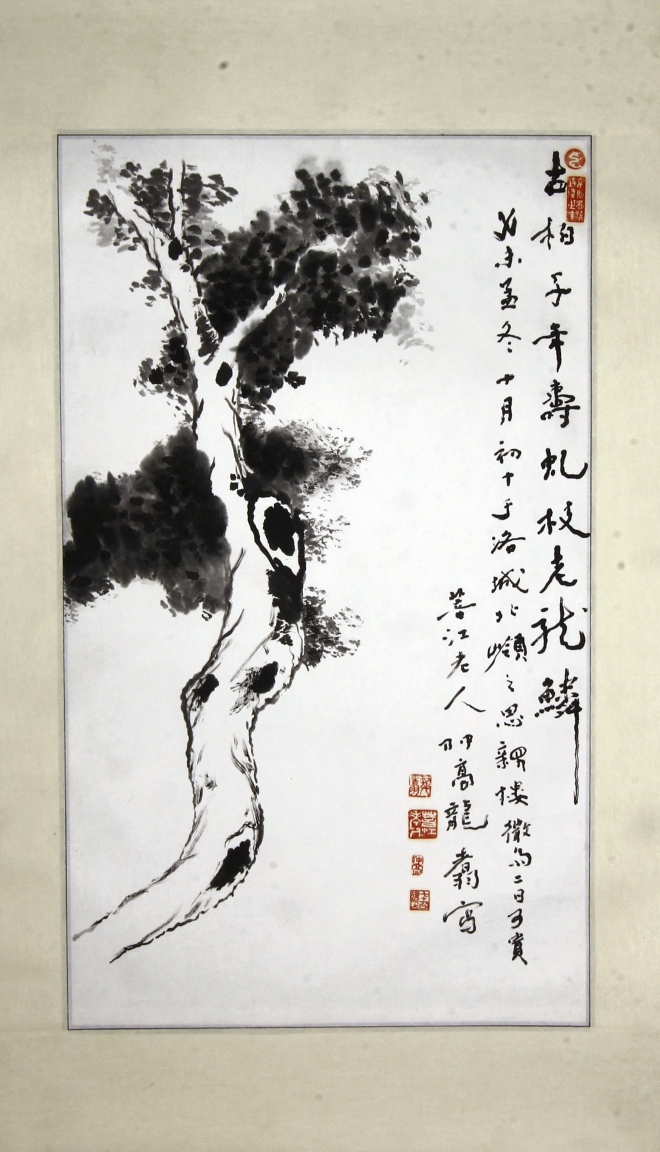 古柏千年壽虬枝老龍鱗
孟冬十月初十于洛城北嶺之思親樓微雨二日可賞
普江老人 高龍 寫